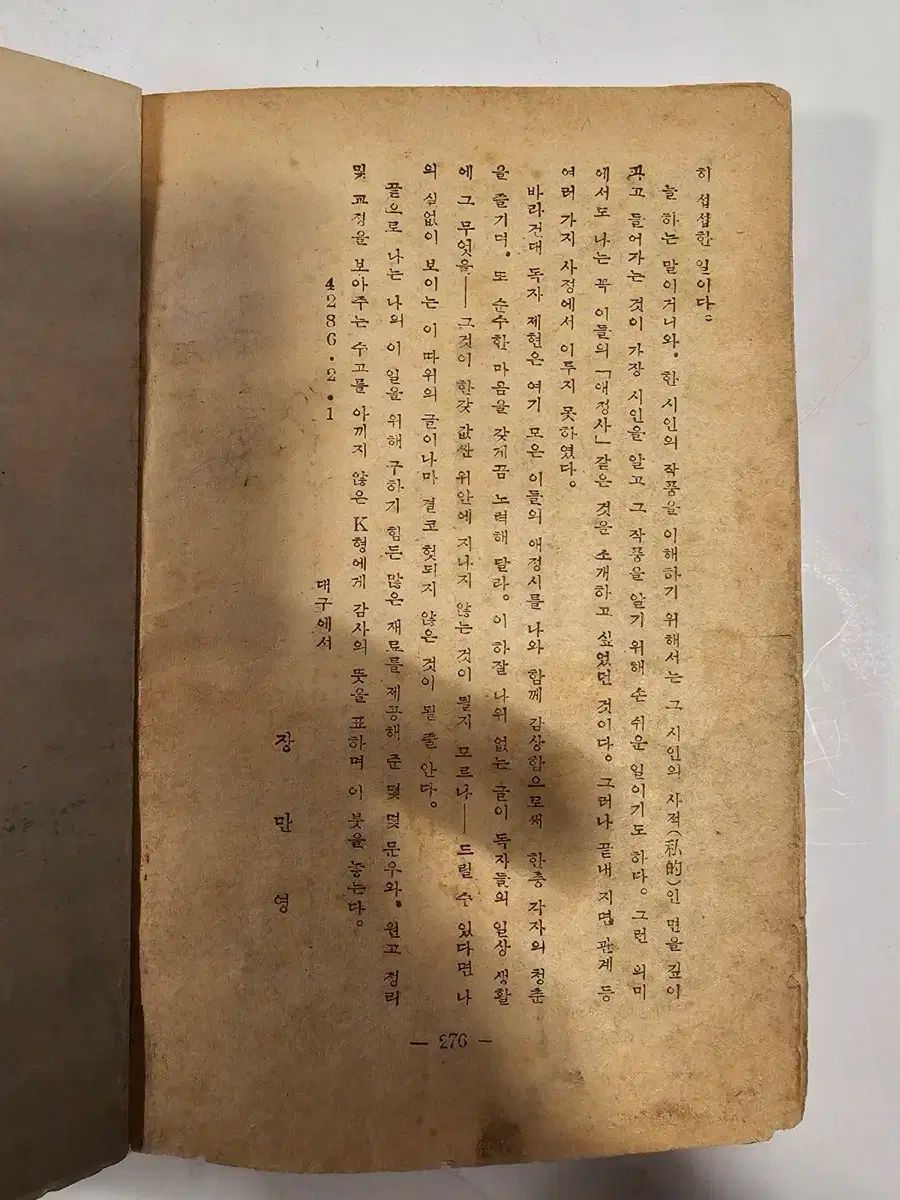 히 섭섭한 일이다。
늘 하는 말이거니와, 한 시인의 작품을 이해하기 위해서는 그 시인의 사적(私的)인 면을 깊이
파고 들어가는 것이 가장 시인을 알고 그 작품을 알기 위해 손 쉬운 일이기도 하다。 그런 의미
에서도 나는 꼭 이들의 「애정사」 같은 것을 소개하고 싶었던 것이다。 그러나 끝내 지면 관계 등
여러 가지 사정에서 이루지 못하였다。
바라건대 독자 제현은 여기 모은 이들의 애정시를 나와 함께 감상함으로써 한층 각자의 청춘
을 즐기며, 또 순수한 마음을 갖게끔 노력해 달라。 이 하잘 나위 없는 글이 독자들의 일상 생활
에 그 무엇을── 그것이 한갖 값싼 위안에 지나지 않는 것이 될지 모르나── 드릴 수 있다면 나
의 실없이 보이는 이 따위의 글이나마 결코 헛되지 않은 것이 될 줄 안다。
끝으로 나는 나의 이 일을 위해 구하기 힘든 많은 재료를 제공해 준 몇 몇 문우와, 원고 정리
및 교정을 보아주는 수고를 아끼지 않은 K형에게 감사의 뜻을 표하며 이 붓을 놓는다。
4286·2·1
대구에서
장 만 영
— 276 —